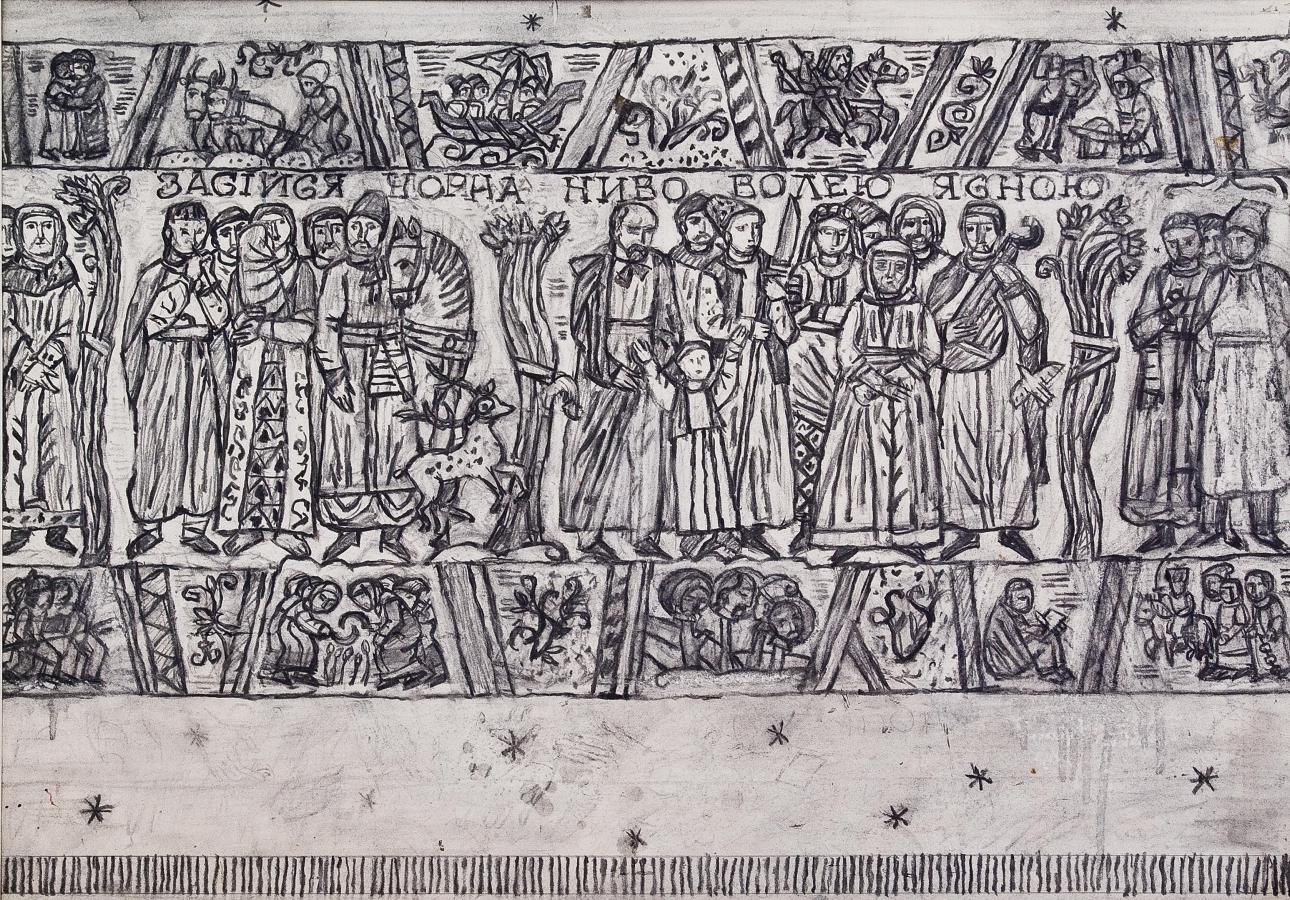 ЗАСІЙСЯ ЧОРНА НИВО ВОЛЕЮ ЯСНОЮ